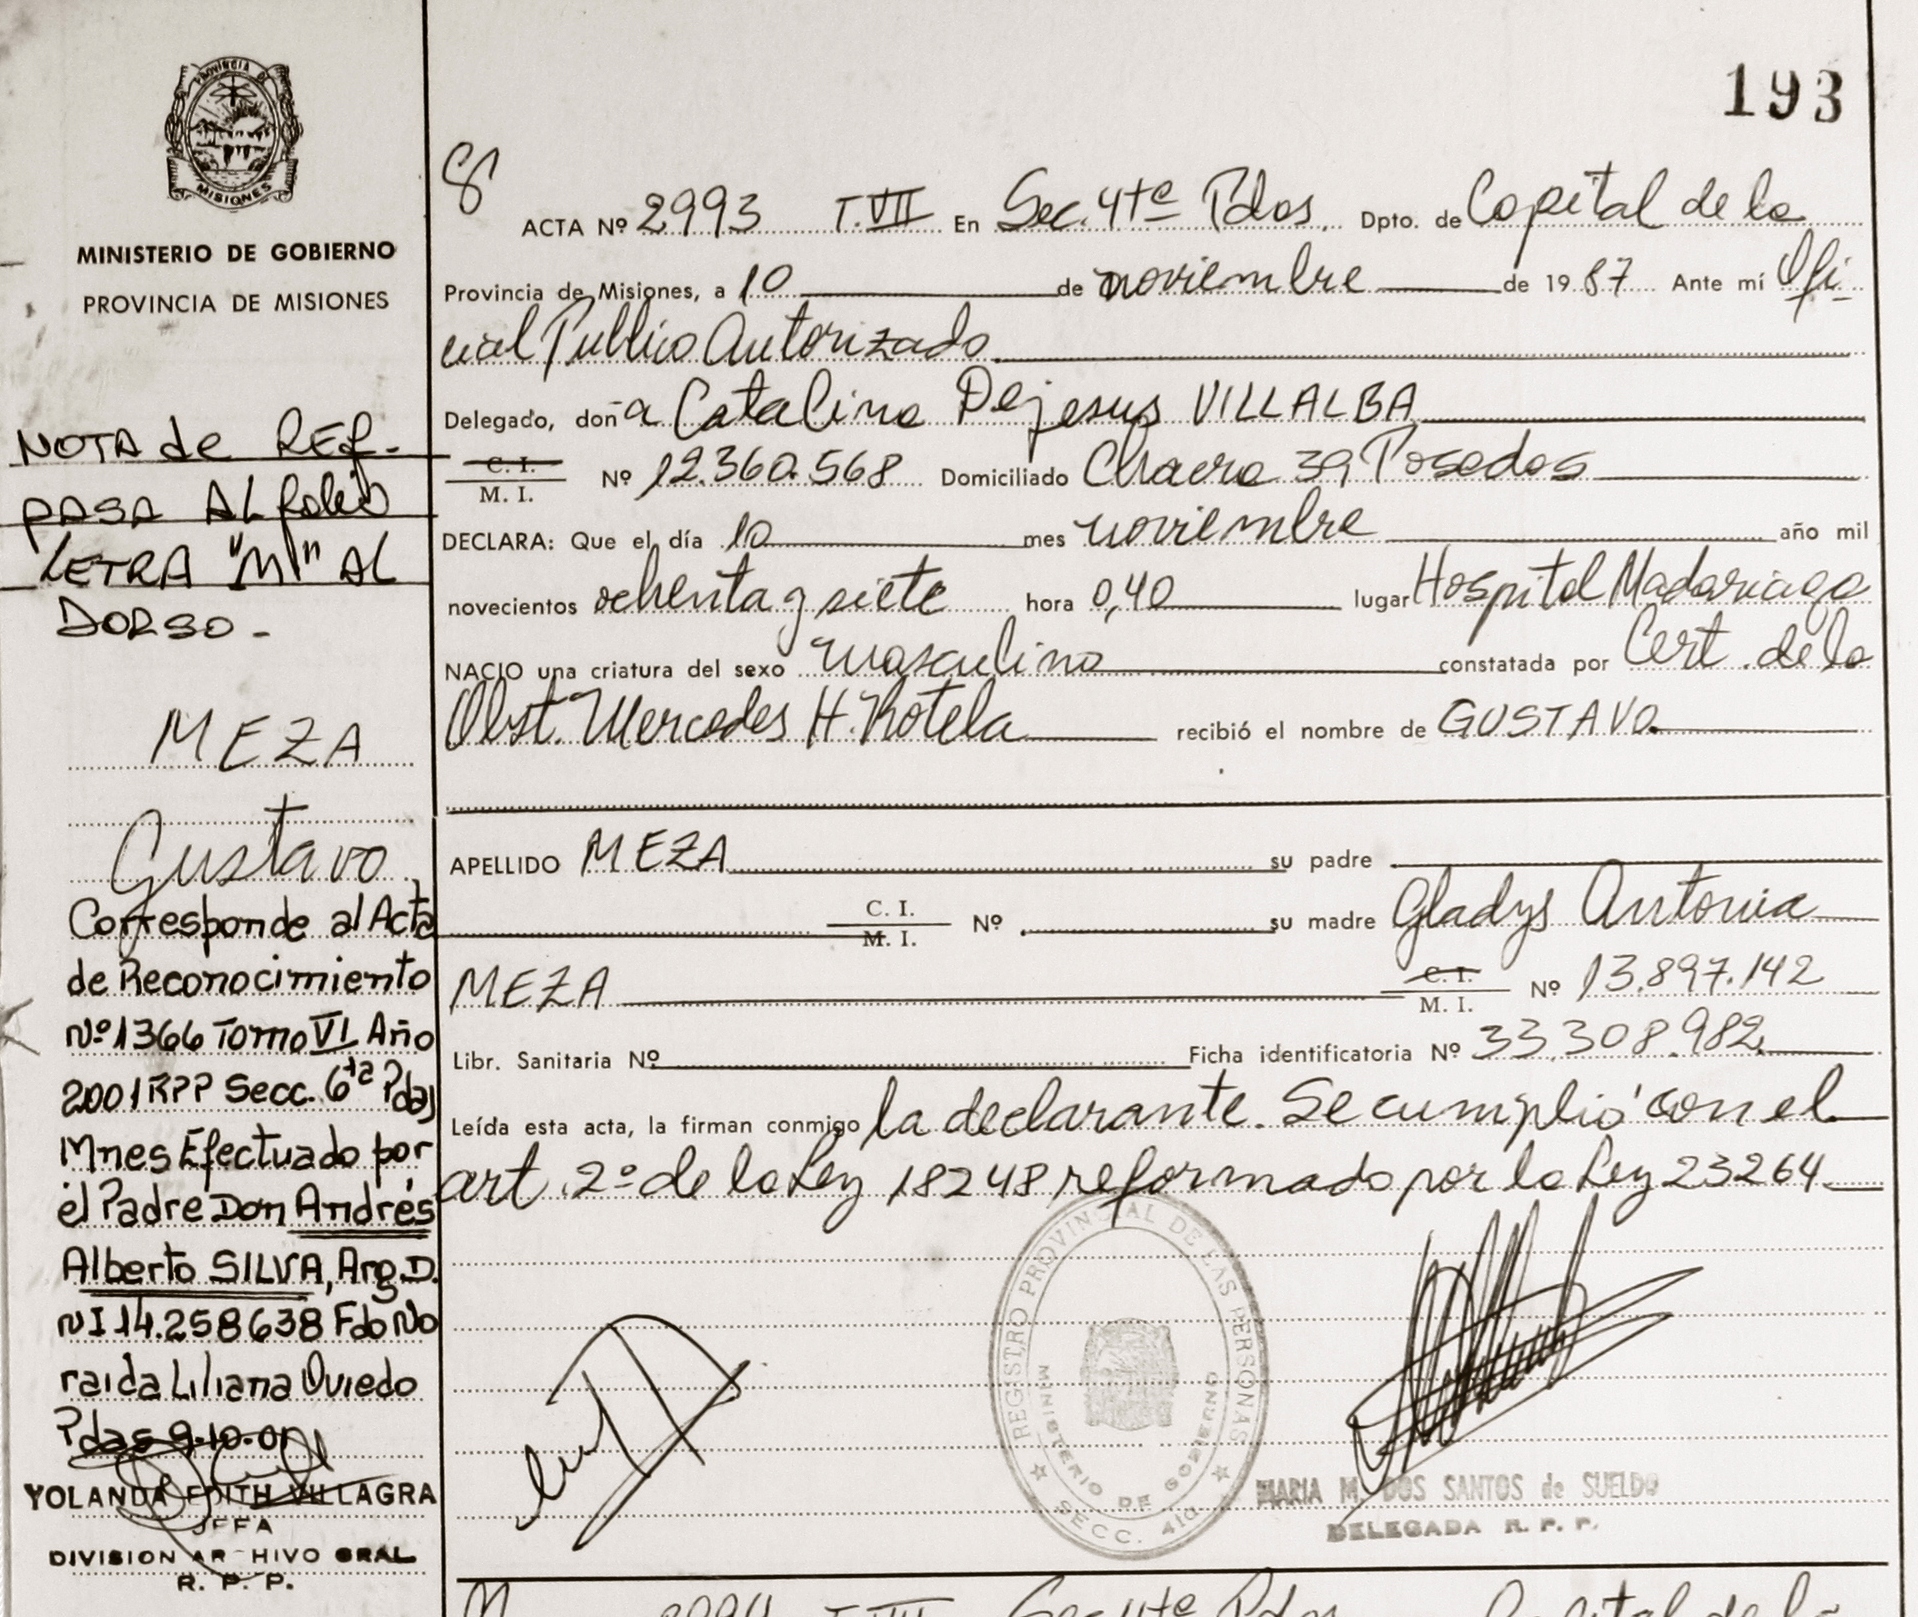 193
PROVINCIA DE
MISIONES
MINISTERIO DE GOBIERNO
PROVINCIA DE MISIONES
NOTA de REF-
PASA AL folio
LETRA "M" AL
DORSO -
MEZA
Gustavo
Corresponde al Acta
de Reconocimiento
Nº 1366 Tomo VI Año
2001 RPP Secc. 6ta Pdas
Mnes Efectuado por
el Padre Don Andrés
Alberto SILVA, Arg. D.
NI 14.258638 Fdo No
raida Liliana Oviedo
Pdas 9-10-01
YOLANDA EDITH VILLAGRA
JEFA
DIVISION AR HIVO GRAL
R. P. P.
ACTA Nº 2993 T.VII En Sec. 4ta Pdas. Dpto. de Capital de la
Provincia de Misiones, a 10 de noviembre de 1987 Ante mí Ofi
cial Publico Autorizado.
Delegado, doña Catalina Dejesus VILLALBA
C. I.
M. I. Nº 12.360.568 Domiciliado Chacra 39 Posadas
DECLARA: Que el día 10 mes noviembre año mil
novecientos ochenta y siete hora 0,40 lugar Hospital Madariaga
NACIO una criatura del sexo masculino constatada por Cert. de la
Obst. Mercedes H. Rotela recibió el nombre de GUSTAVO
APELLIDO MEZA su padre
C. I.
M. I. Nº su madre Gladys Antonia
MEZA C. I.
M. I. Nº 13.897.142
Libr. Sanitaria Nº Ficha identificatoria Nº 33.308.982
Leída esta acta, la firman conmigo la declarante. Se cumplió con el
art. 2º de la Ley 18248 reformado por la Ley 23264
REGISTRO PROVINCIAL DE LAS PERSONAS
MINISTERIO DE GOBIERNO
SECC. 4ta
MARIA M. DOS SANTOS de SUELDO
DELEGADA R. P. P.
2994 T.VII Sec 4ta Pdas Capital de la